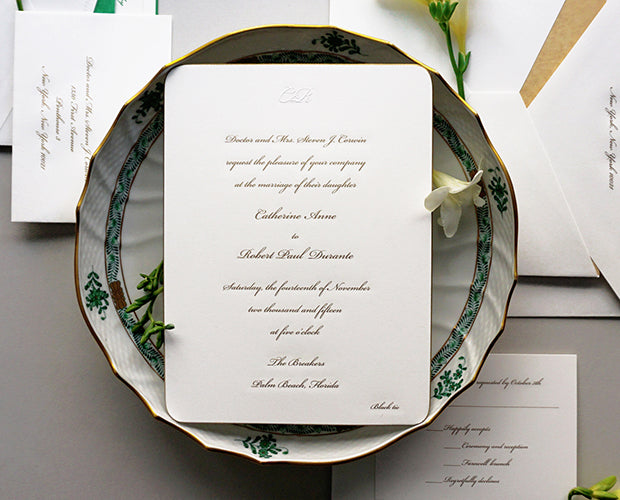 CR
Doctor and Mrs. Steven J. Corwin
request the pleasure of your company
at the marriage of their daughter
Catherine Anne
to
Robert Paul Durante
Saturday, the fourteenth of November
two thousand and fifteen
at five o'clock
The Breakers
Palm Beach, Florida
Black tie
Doctor and Mrs. Steven J.
1530 First Avenue
Penthouse
New York, New York 10021
New York, New York 10021
requested by October 5th
Happily accepts
Ceremony and reception
Farewell brunch
Regretfully declines